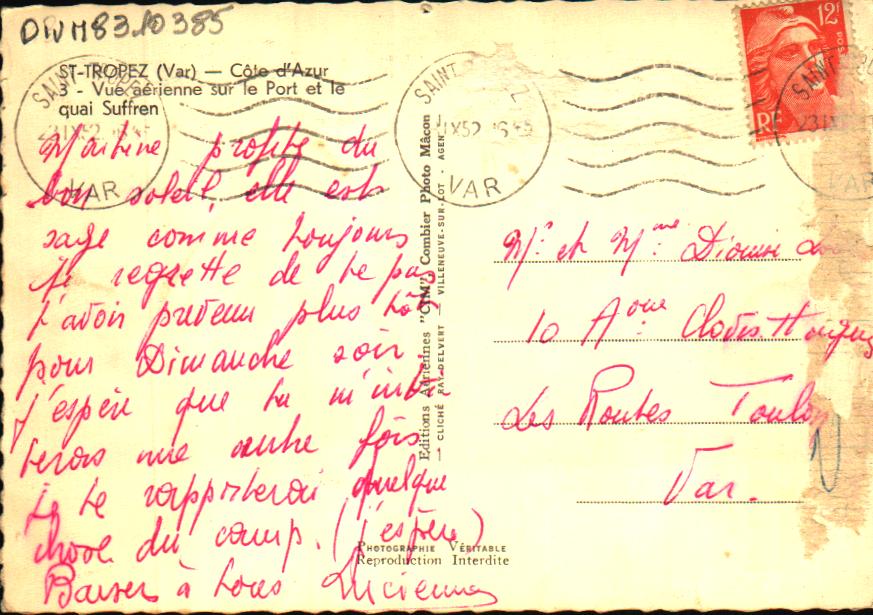 DIVM83.10385
ST-TROPEZ (Var) — Côte d'Azur
3 - Vue aérienne sur le Port et le
quai Suffren
SAINT
VAR
SAINT Z
IX52 16
VAR
12F
POS
RF
SAINT
23 IX
VA
profite du
bon soleil, elle est
sage comme toujours
Je regrette de te pas
t'avoir prevenu plus tôt
pour Dimanche soir.
j'espère que tu m'invi
teras une autre fois
Je te rapporterai quelque
chose du camp. (j'espère)
Baisers à tous Lucienne
Editions Aériennes "CIM" Combier Photo Mâcon
— CLICHÉ RAY-DELVERT — VILLENEUVE-SUR-LOT - AGEN
PHOTOGRAPHIE VÉRITABLE
Reproduction Interdite
Mr et Mme
10 Clovis Hugues
Les Routes Toulon
Var.